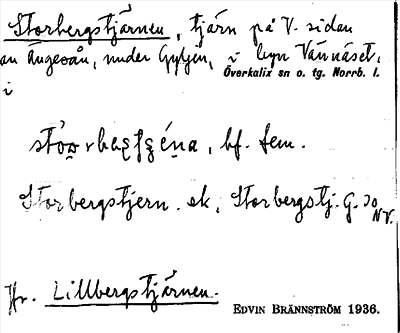 Storbergstjärnen, tjärn på V. sidan
an Ängesån, under Gyljen, i byn Vännäset,
Överkalix sn o. tg. Norrb. l.
i
bf. fem.
Storbergstjern. ek, Storbergstj. G. 30
NV.
Jfr. Lillbergstjärnen.
EDVIN BRÄNNSTRÖM 1936.